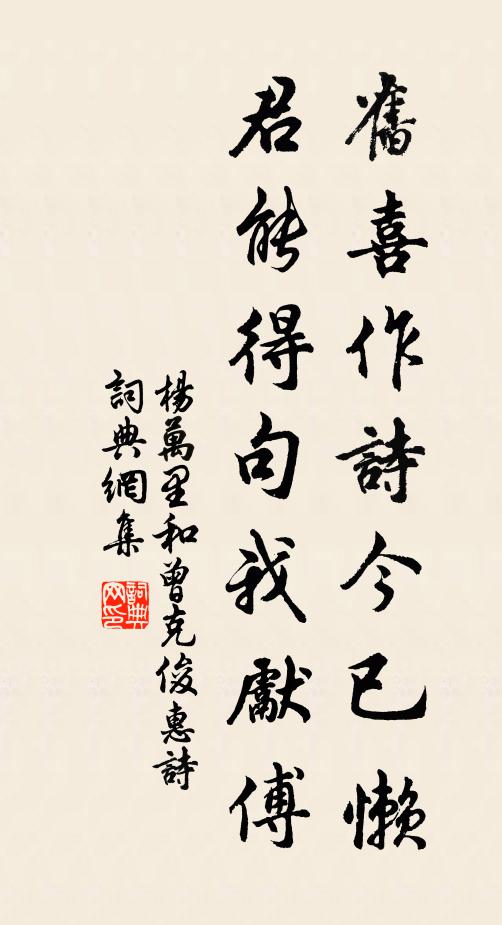 舊喜作詩今已懶
君能得句我獻傅
楊萬里和曾克俊惠詩
詞典網集
詞典网印